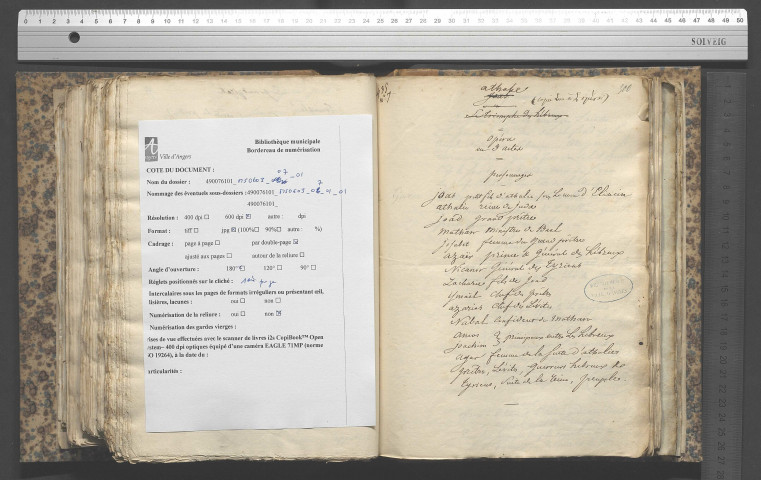 SOLVEIG
Ville d'Angers
Bibliothèque municipale
Bordereau de numérisation
COTE DU DOCUMENT :
Nom du dossier : 490076101_
Nommage des éventuels sous-dossiers : 490076101_
490076101_
Résolution : 400 dpi ☐ 600 dpi ☒ autre : dpi
Format : tiff ☐ jpg ☒ (100% ☐ 90% ☐ autre : %)
Cadrage : page à page ☐ par double-page ☒
ajusté aux pages ☐ autour de la reliure ☐
Angle d'ouverture : 180° ☒ 120° ☐ 90° ☐
Réglets positionnés sur le cliché :
Intercalaires sous les pages de formats irréguliers ou présentant
lisières, lacunes : oui ☐ non ☐
Numérisation de la reliure : oui ☐ non ☒
Numérisation des gardes vierges :
ises de vue effectuées avec le scanner de livres i2s CopiBook™ Open
stem– 400 dpi optiques équipé d'une caméra EAGLE 71MP (norme
O 19264), à la date du :
articularités :
athalie
ou
Le triomphe des hébreux
opéra
en 3 actes
personnages
Joas petit fils d'athalie sous le nom d'Eliacin
athalie reine de Juda
Joad grand prêtre
Mathan Ministre de Baal
Josabet femme du grand prêtre
azarias prince & Général des hébreux
Nicanor Général des Tyriens
Zacharie fils de Joad
Ismael chef des prêtres
azarias chef des Lévites
Nabal confident de Mathan
amos
Joachim } principaux entre les hébreux
agar femme de la suite d'athalie
prêtres, Lévites, guerriers hébreux &
tyriens, suite de la reine, peuples.